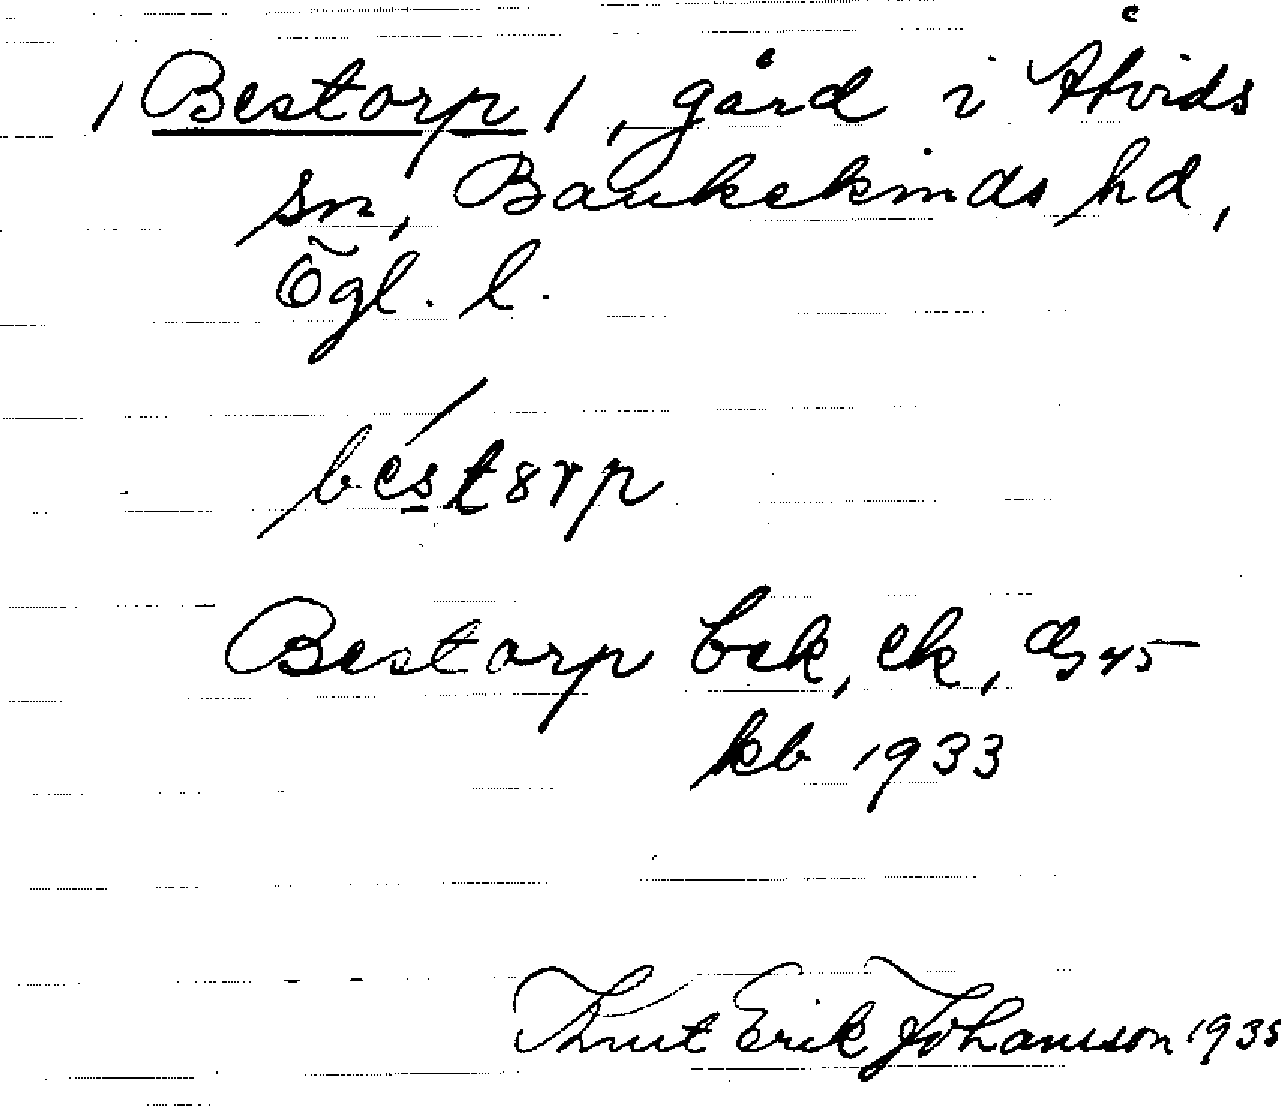 /Bestorp/, gård i Åtvids
sn, Bankekinds hd,
Ögl. l.
béstȣrp
Bestorp bek, ek, GS 45
kb 1933
Knut Erik Johansson 1935